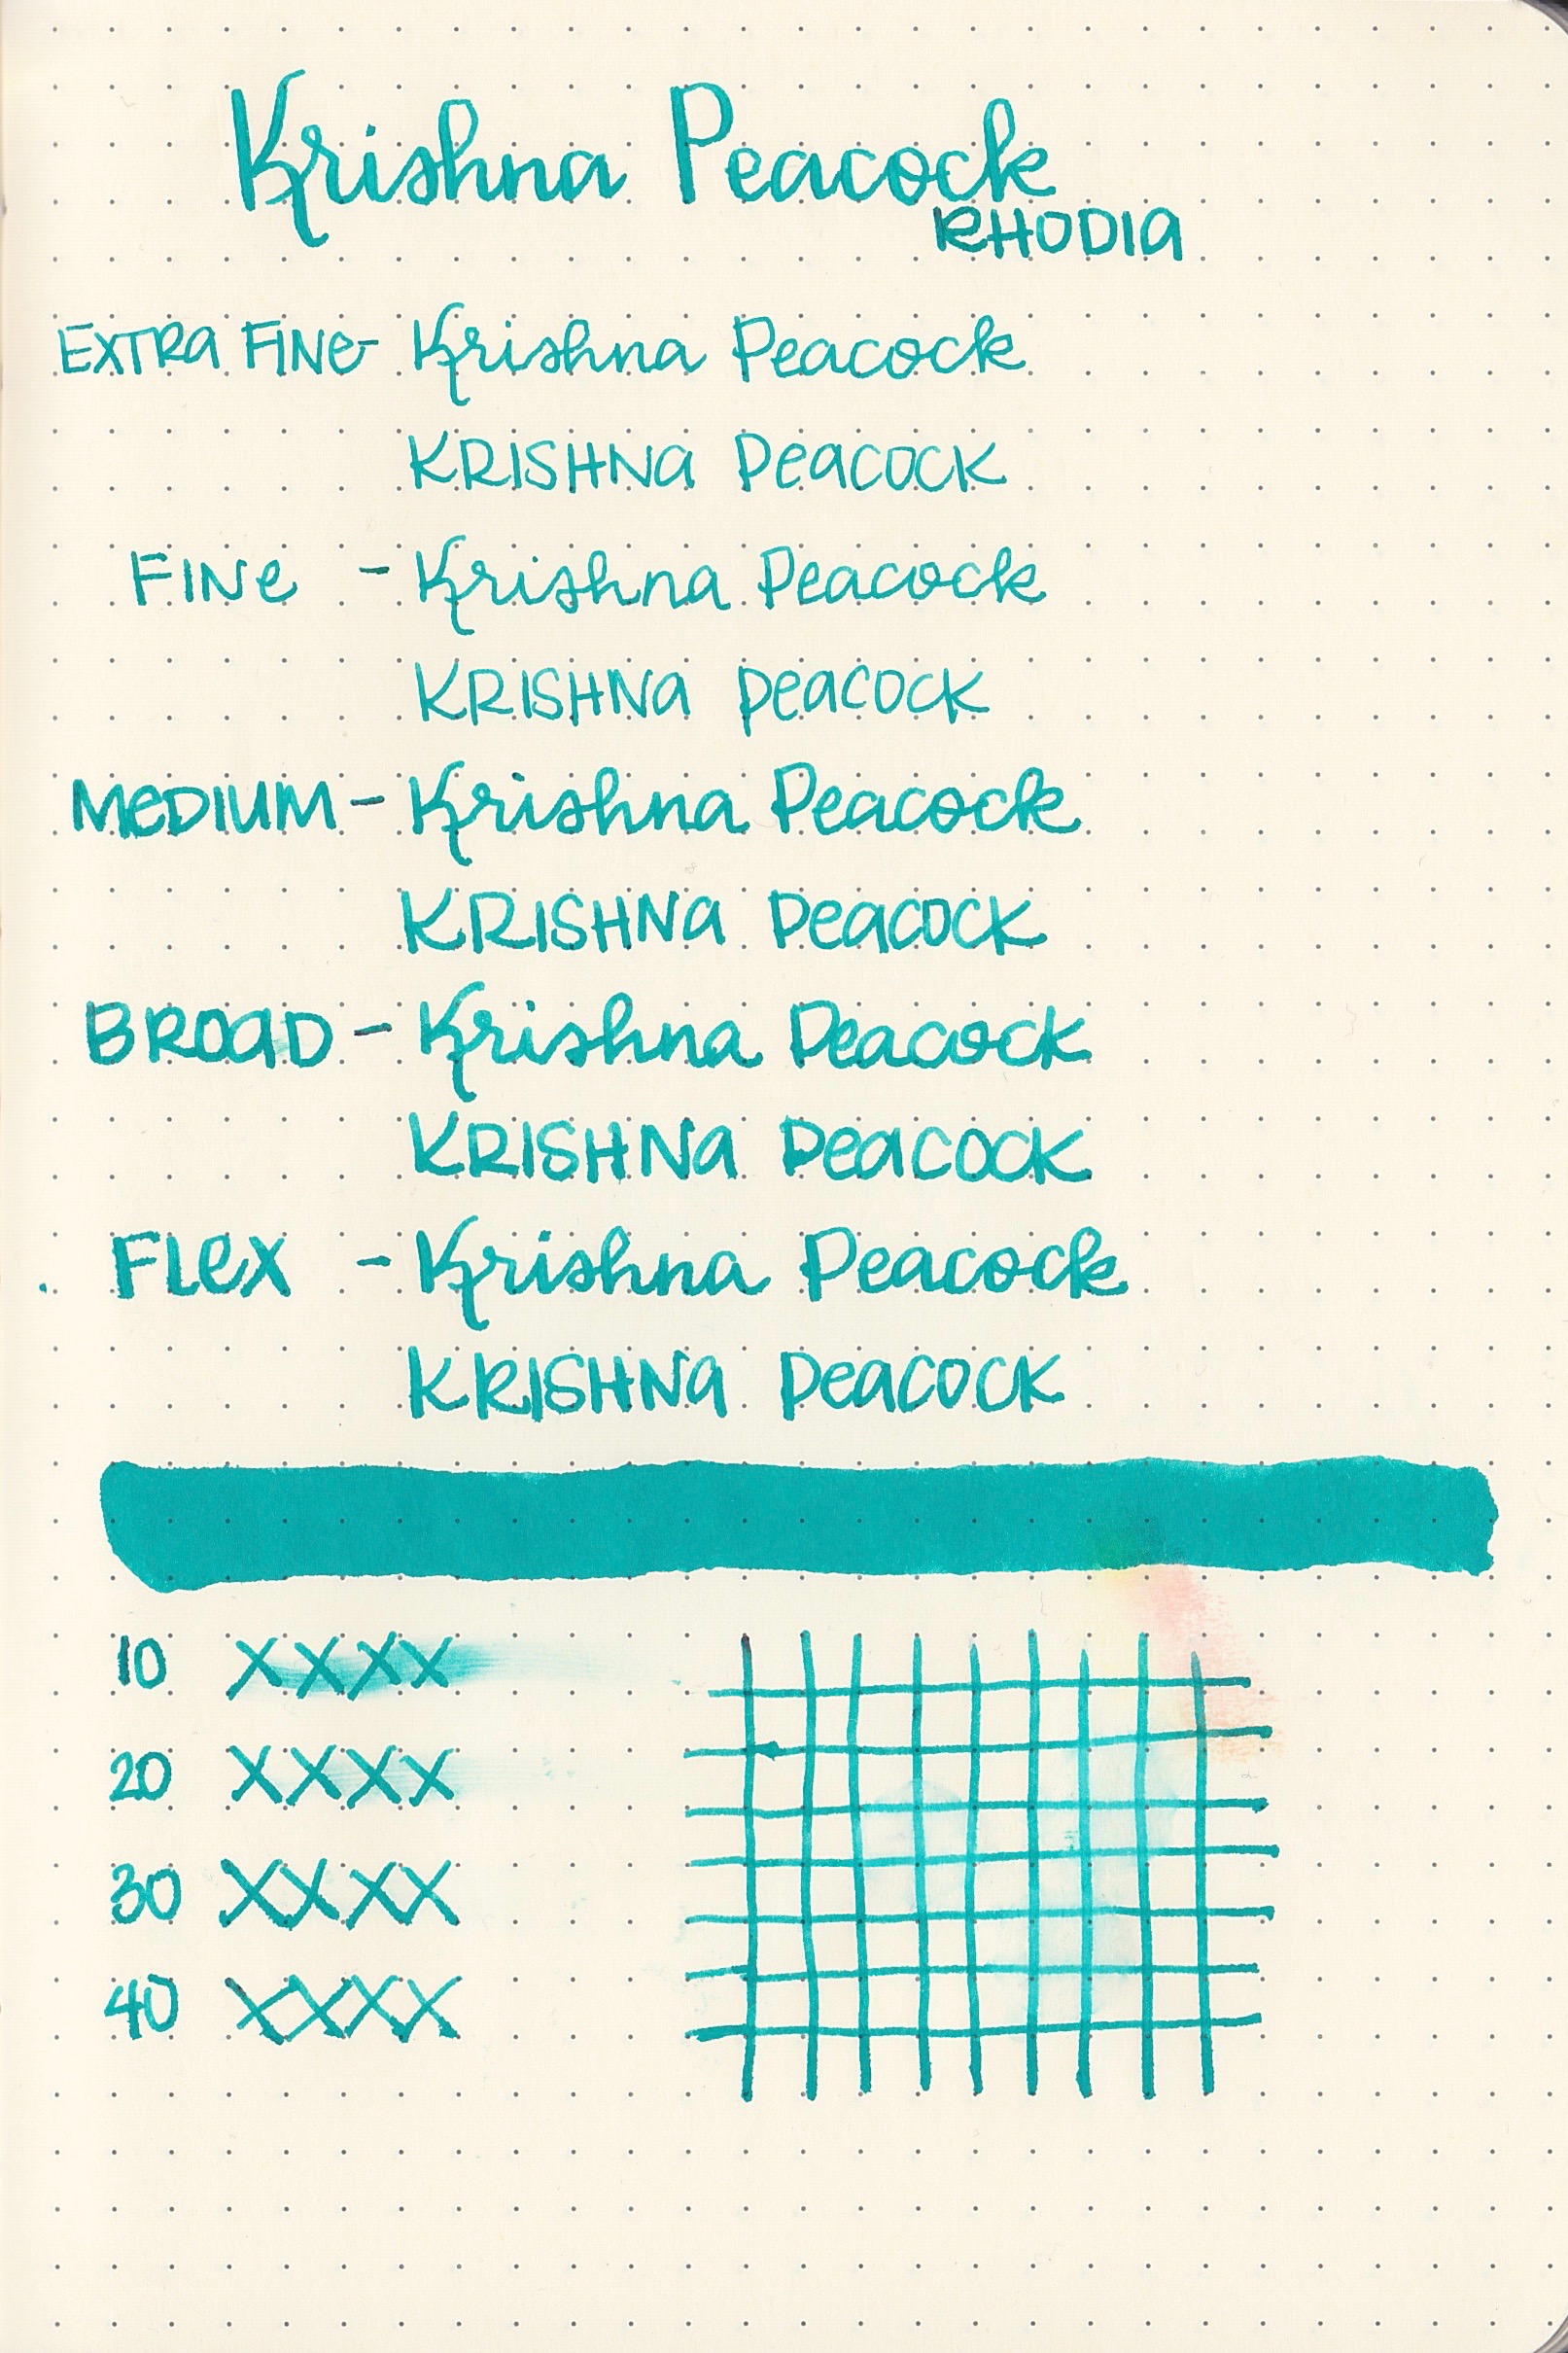 Krishna Peacock
RHODIA
EXTRA FINE - Krishna Peacock
KRISHNA PEACOCK
FINE - Krishna Peacock
KRISHNA PEACOCK
MEDIUM - Krishna Peacock
KRISHNA PEACOCK
BROAD - Krishna Peacock
KRISHNA PEACOCK
FLEX - Krishna Peacock
KRISHNA PEACOCK
10 XXXX
20 XXXX
30 XXXX
40 XXXX